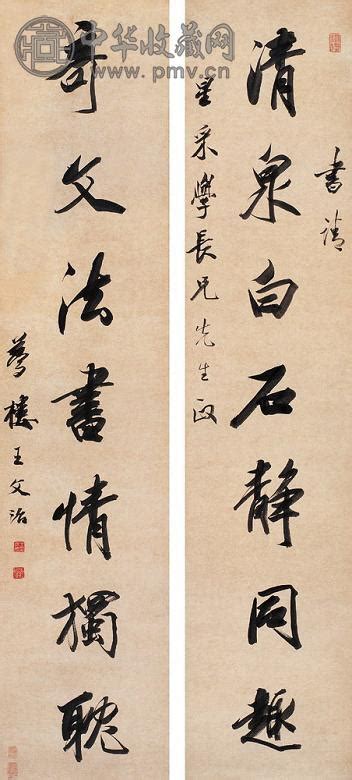 中华收藏网
www.pmv.cn
书请
清泉白石静同趣
星采學長兄先生政
奇文法書情獨耽
夢樓王文治